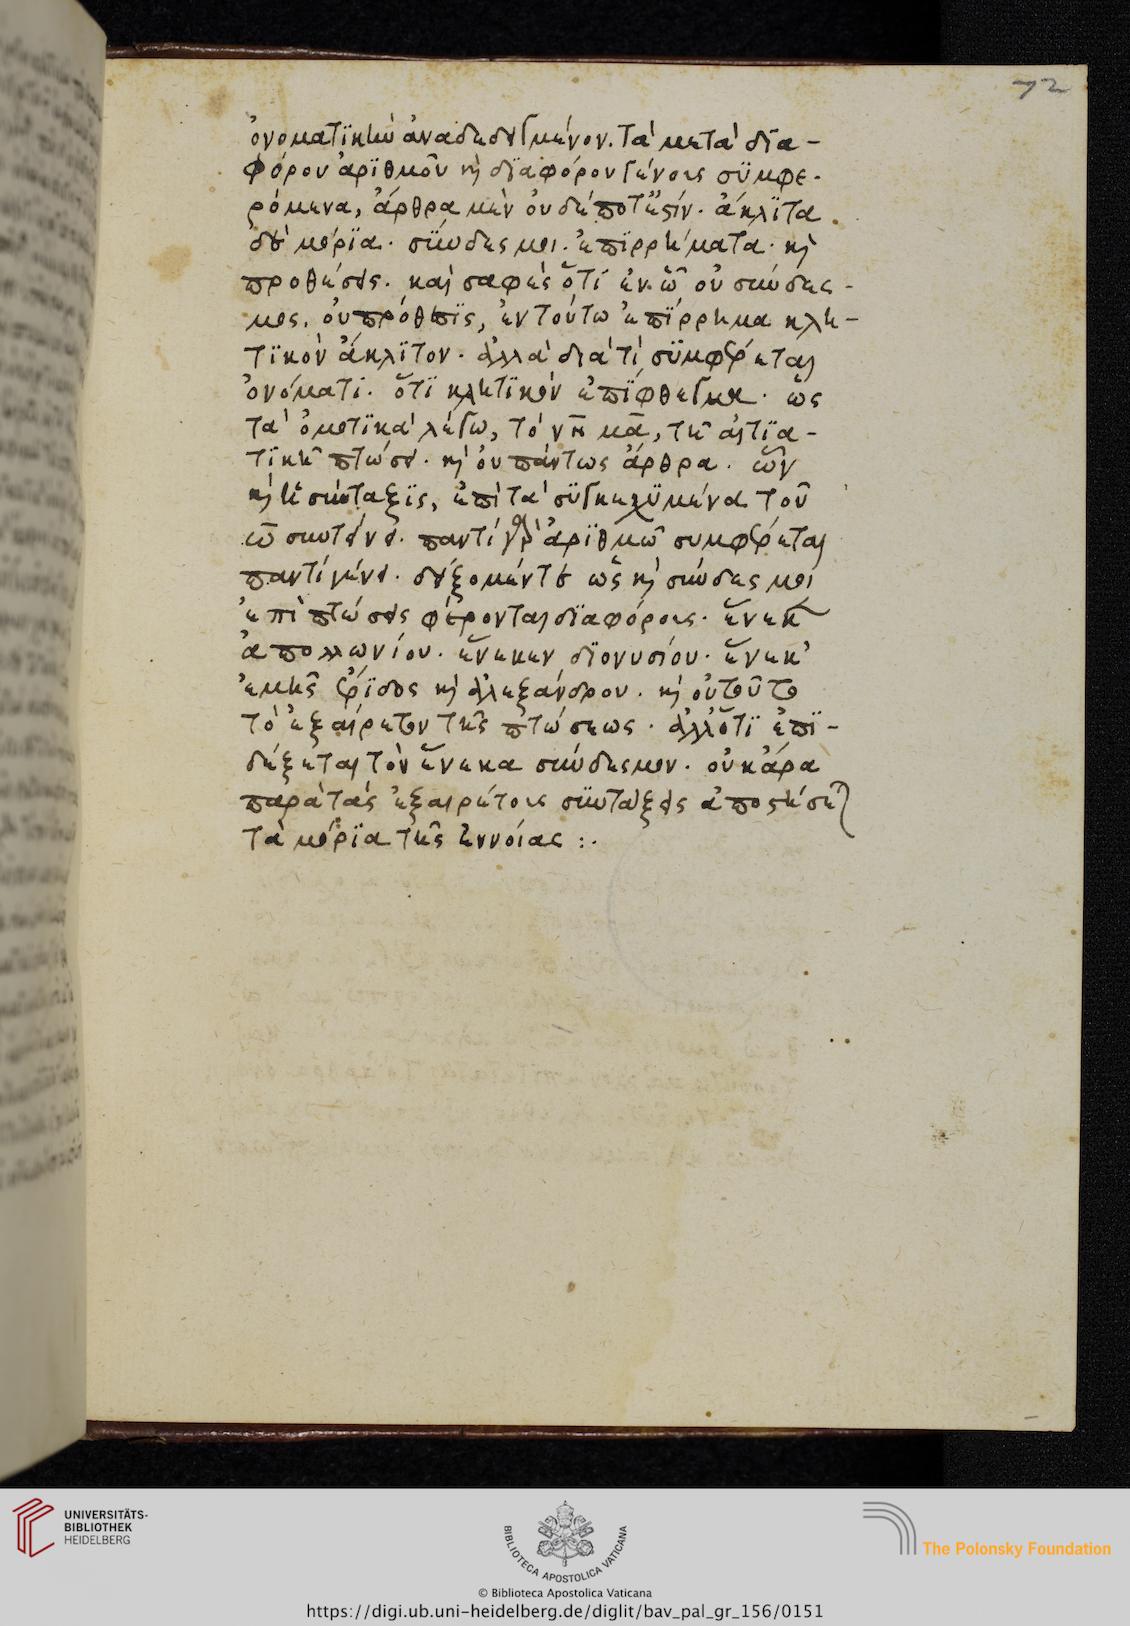 72
ὀνοματικὴν ἀναδεδεγμένον. τὰ μετὰ δια-
φόρου ἀριθμοῦ κὶ διαφόρου γένους συμφε-
ρόμενα, ἄρθρα μὲν οὐδέποτέ ἐστιν. ἄκλιτα
δὲ μόρια. σύνδεσμοι. ἐπιρρήματα. κὶ
προθέσεις. καὶ σαφὲς ὅτι ἐκ τοῦ οὐ σύνδεσ-
μος. οὐ πρόθεσις, ἐν τούτω ἐπίρρημα κλη-
τικὸν ἄκλιτον. ἀλλὰ διατί συμφέρεται
ὀνόματι. ὅτι κλητικὸν ἐπίφθεγμα. ὡς
τὰ ὀμοτικὰ λέγω, τὸ νὴ μὰ, τῆ αἰτια-
τικῆ πτώσει. κὶ οὐ πάντως ἄρθρα. ὧν
κὶ ἡ σύνταξις, ἐπὶ τὰ συγκεχυμένα τοῦ
ω συντείνει. παντὶ γὰρ ἀριθμῶ συμφέρεται
παντὶ γένει. δείξομέν τε ὡς κὶ σύνδεσμοι
ἐπὶ πτώσεις φέρονται διαφόρους. ἕνεκα
ἀπολλωνίου. ἕνεκεν διονυσίου. ἕνεκ'
ἐμῆς ἔριδος κὶ ἀλεξάνδρου. κὶ οὐ τοῦτο
τὸ ἐξαίρετον τῆς πτώσεως. ἀλλ' ὅτι ἐπι-
δέξεται τὸν ἕνεκα σύνδεσμον. οὐκ ἄρα
παρὰ τὰς ἐξαιρέτους συντάξεις ἀποστήσει
τὰ μόρια τῆς ἐννοίας :.
UNIVERSITÄTS-
BIBLIOTHEK
HEIDELBERG
BIBLIOTECA APOSTOLICA VATICANA
The Polonsky Foundation
© Biblioteca Apostolica Vaticana
https://digi.ub.uni-heidelberg.de/diglit/bav_pal_gr_156/0151